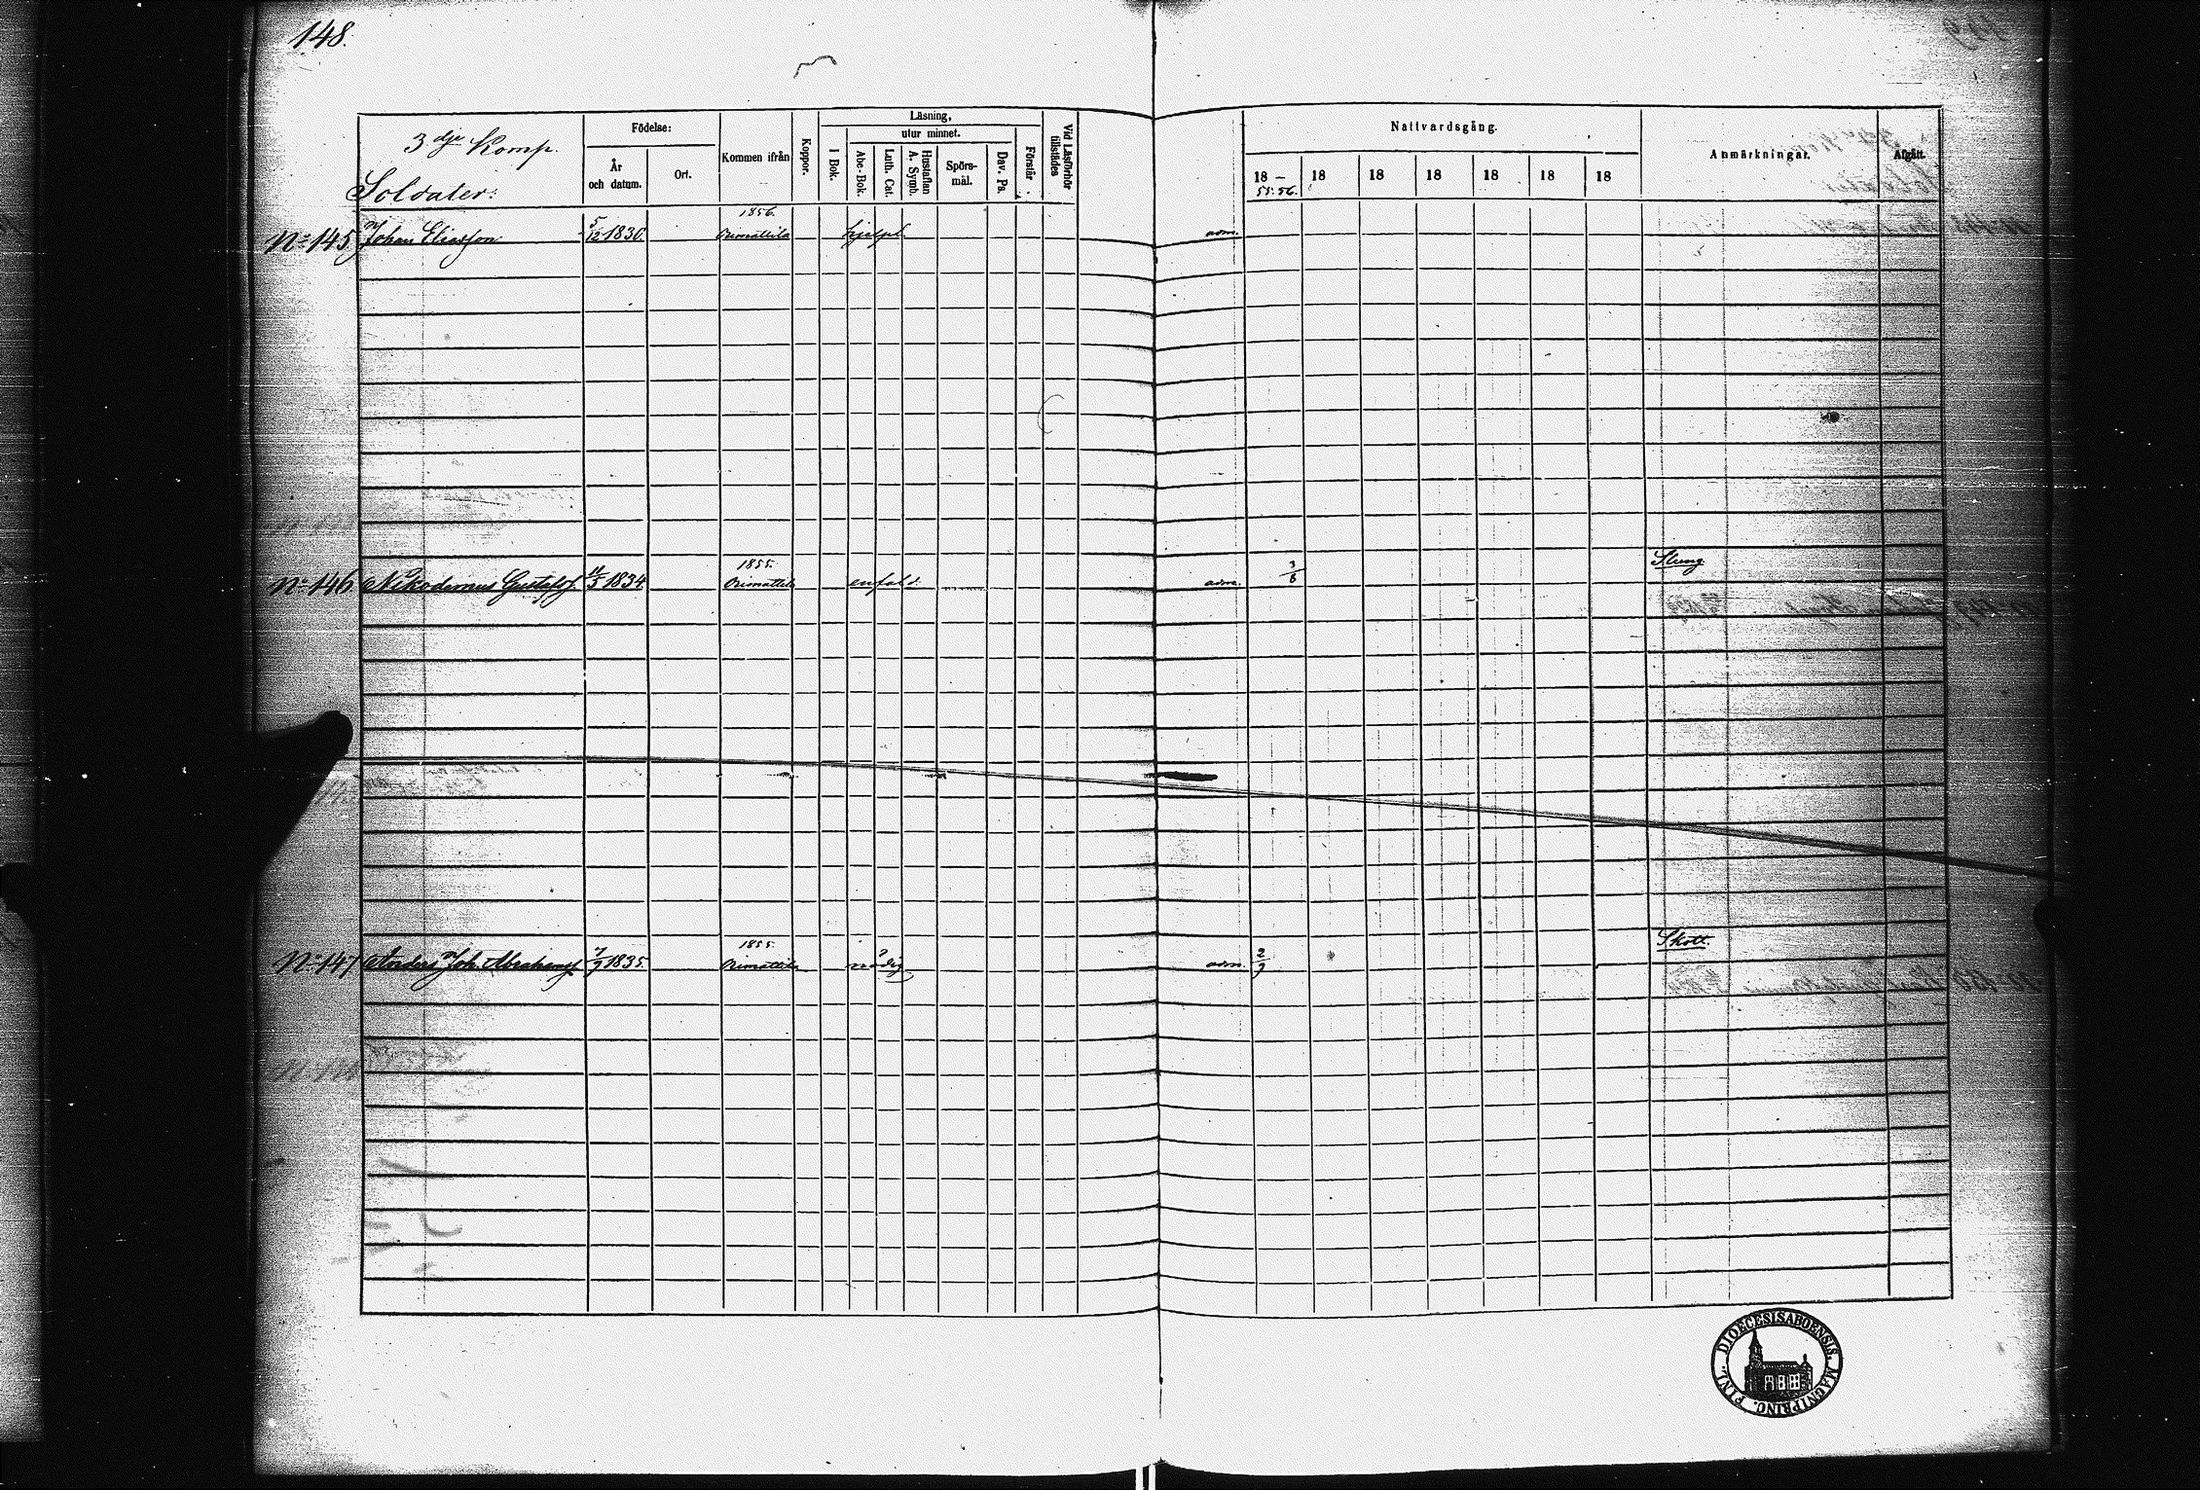 148.
3 dje Komp.
Soldater:
Födelse:
År
och datum.
Ort.
Kommen ifrån
Koppor.
Läsning,
utur minnet.
I Bok.
Abc-Bok.
Luth. Cat.
Hustaflan
A. Symb.
Spörs-
mål.
Dav. Ps.
Förstår.
Vid Läsförhör
tillstädes
Nattvardsgång.
18 – 18 18 18 18 18 18
55. 56.
Anmärkningar.
Afgått.
1856.
No 145 Johan Eliasson 5/12 1830. Orimattila hjelpl. adm.
1855. Slung
No 146 Nikodemus Gustafss. 11/5 1834 Orimattila enfald. adm. 3/6
1855. Skott.
No 147 Anders Joh. Abrahamss. 7/9 1835. Orimattila adm. 2/9
DIOECESIS ABOENSIS. MAGNI PRINC. FINL.